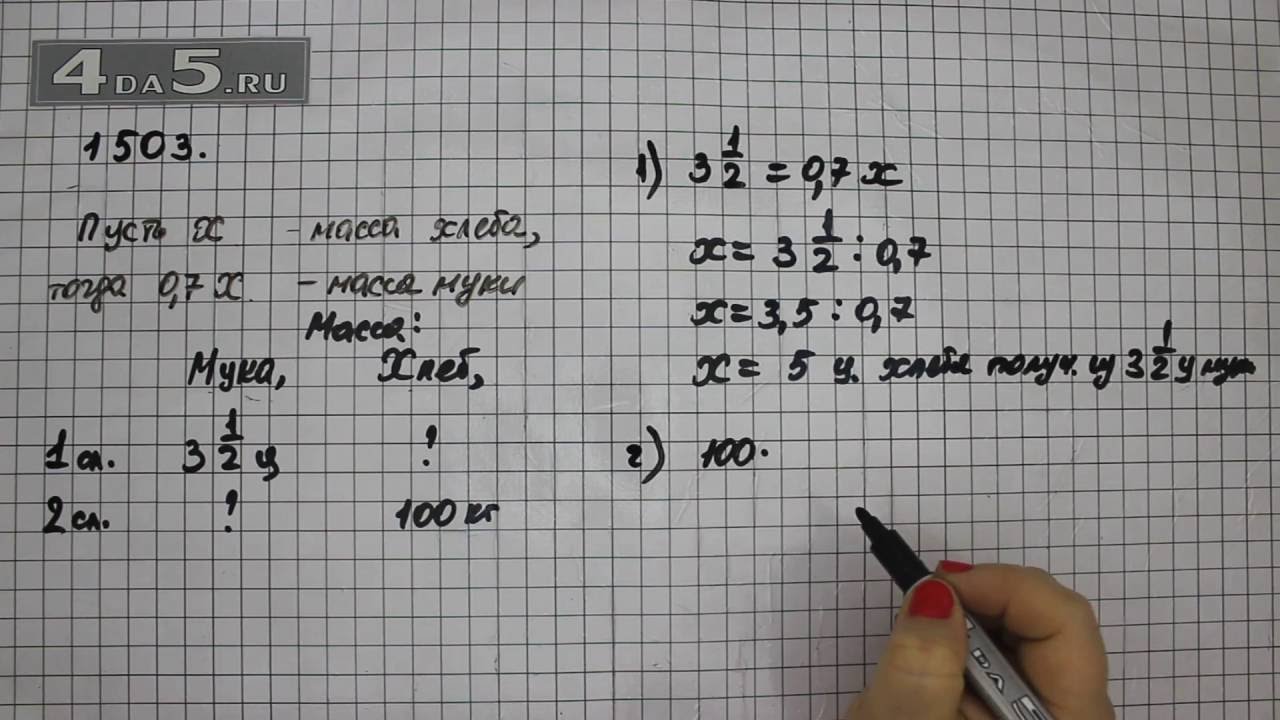 4DA5.RU
1503.
Пусть x - масса хлеба,
тогда 0,7 x - масса муки
Масса:
Мука, Хлеб,
1 сл. 3 1/2 ц ?
2 сл. ? 100 кг
1) 3 1/2 = 0,7 x
x = 3 1/2 : 0,7
x = 3,5 : 0,7
x = 5 ц. хлеба получ. из 3 1/2 ц муки
2) 100.
DA 5